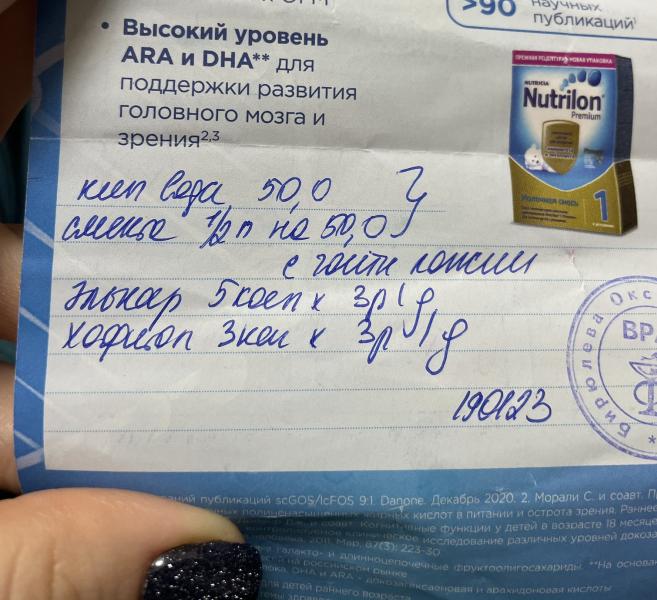 >90
научных
публикаций¹
• Высокий уровень
ARA и DHA** для
поддержки развития
головного мозга и
зрения²,³
ПРЕЖНЯЯ РЕЦЕПТУРА НОВАЯ УПАКОВКА
NUTRICIA
Nutrilon
Premium
Молочная смесь
1
кип вода 50,0
смекта ½ п на 50,0
с чайн ложки
Элькар 5 кап х 3р/д
Хофитол 3 кап х 3р/д
190123
Бирюлева Окс
ВРА
публикаций scGOS/lcFOS 9:1. Danone. Декабрь 2020. 2. Морали С. и соавт.
жирных кислот в питании и острота зрения. Раннее
и соавт. Когнитивные функции у детей в возрасте 18 месяце
клиническое исследование различных уровней
2011. Мар, 87(3): 223-30
галакто- и длинноцепочечные фруктоолигосахариды. **На основа
на российском рынке
DHA и ARA - докозагексаеновая и арахидоновая кислоты
для детей раннего возраста